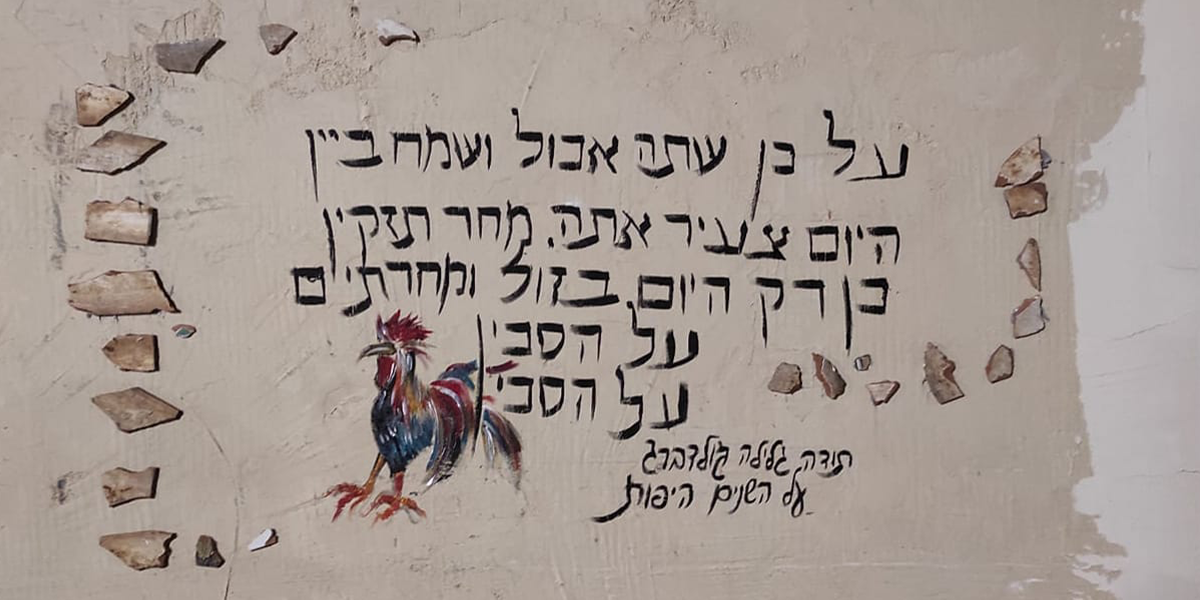 על כן שתה אכול ושמח ביין
היום צעיר אתה. מחר תזקין
כן רק היום. בזול ומחרתיים
על הסכין
על הסכין
תודה גלילה גולדברג
על השנים היפות